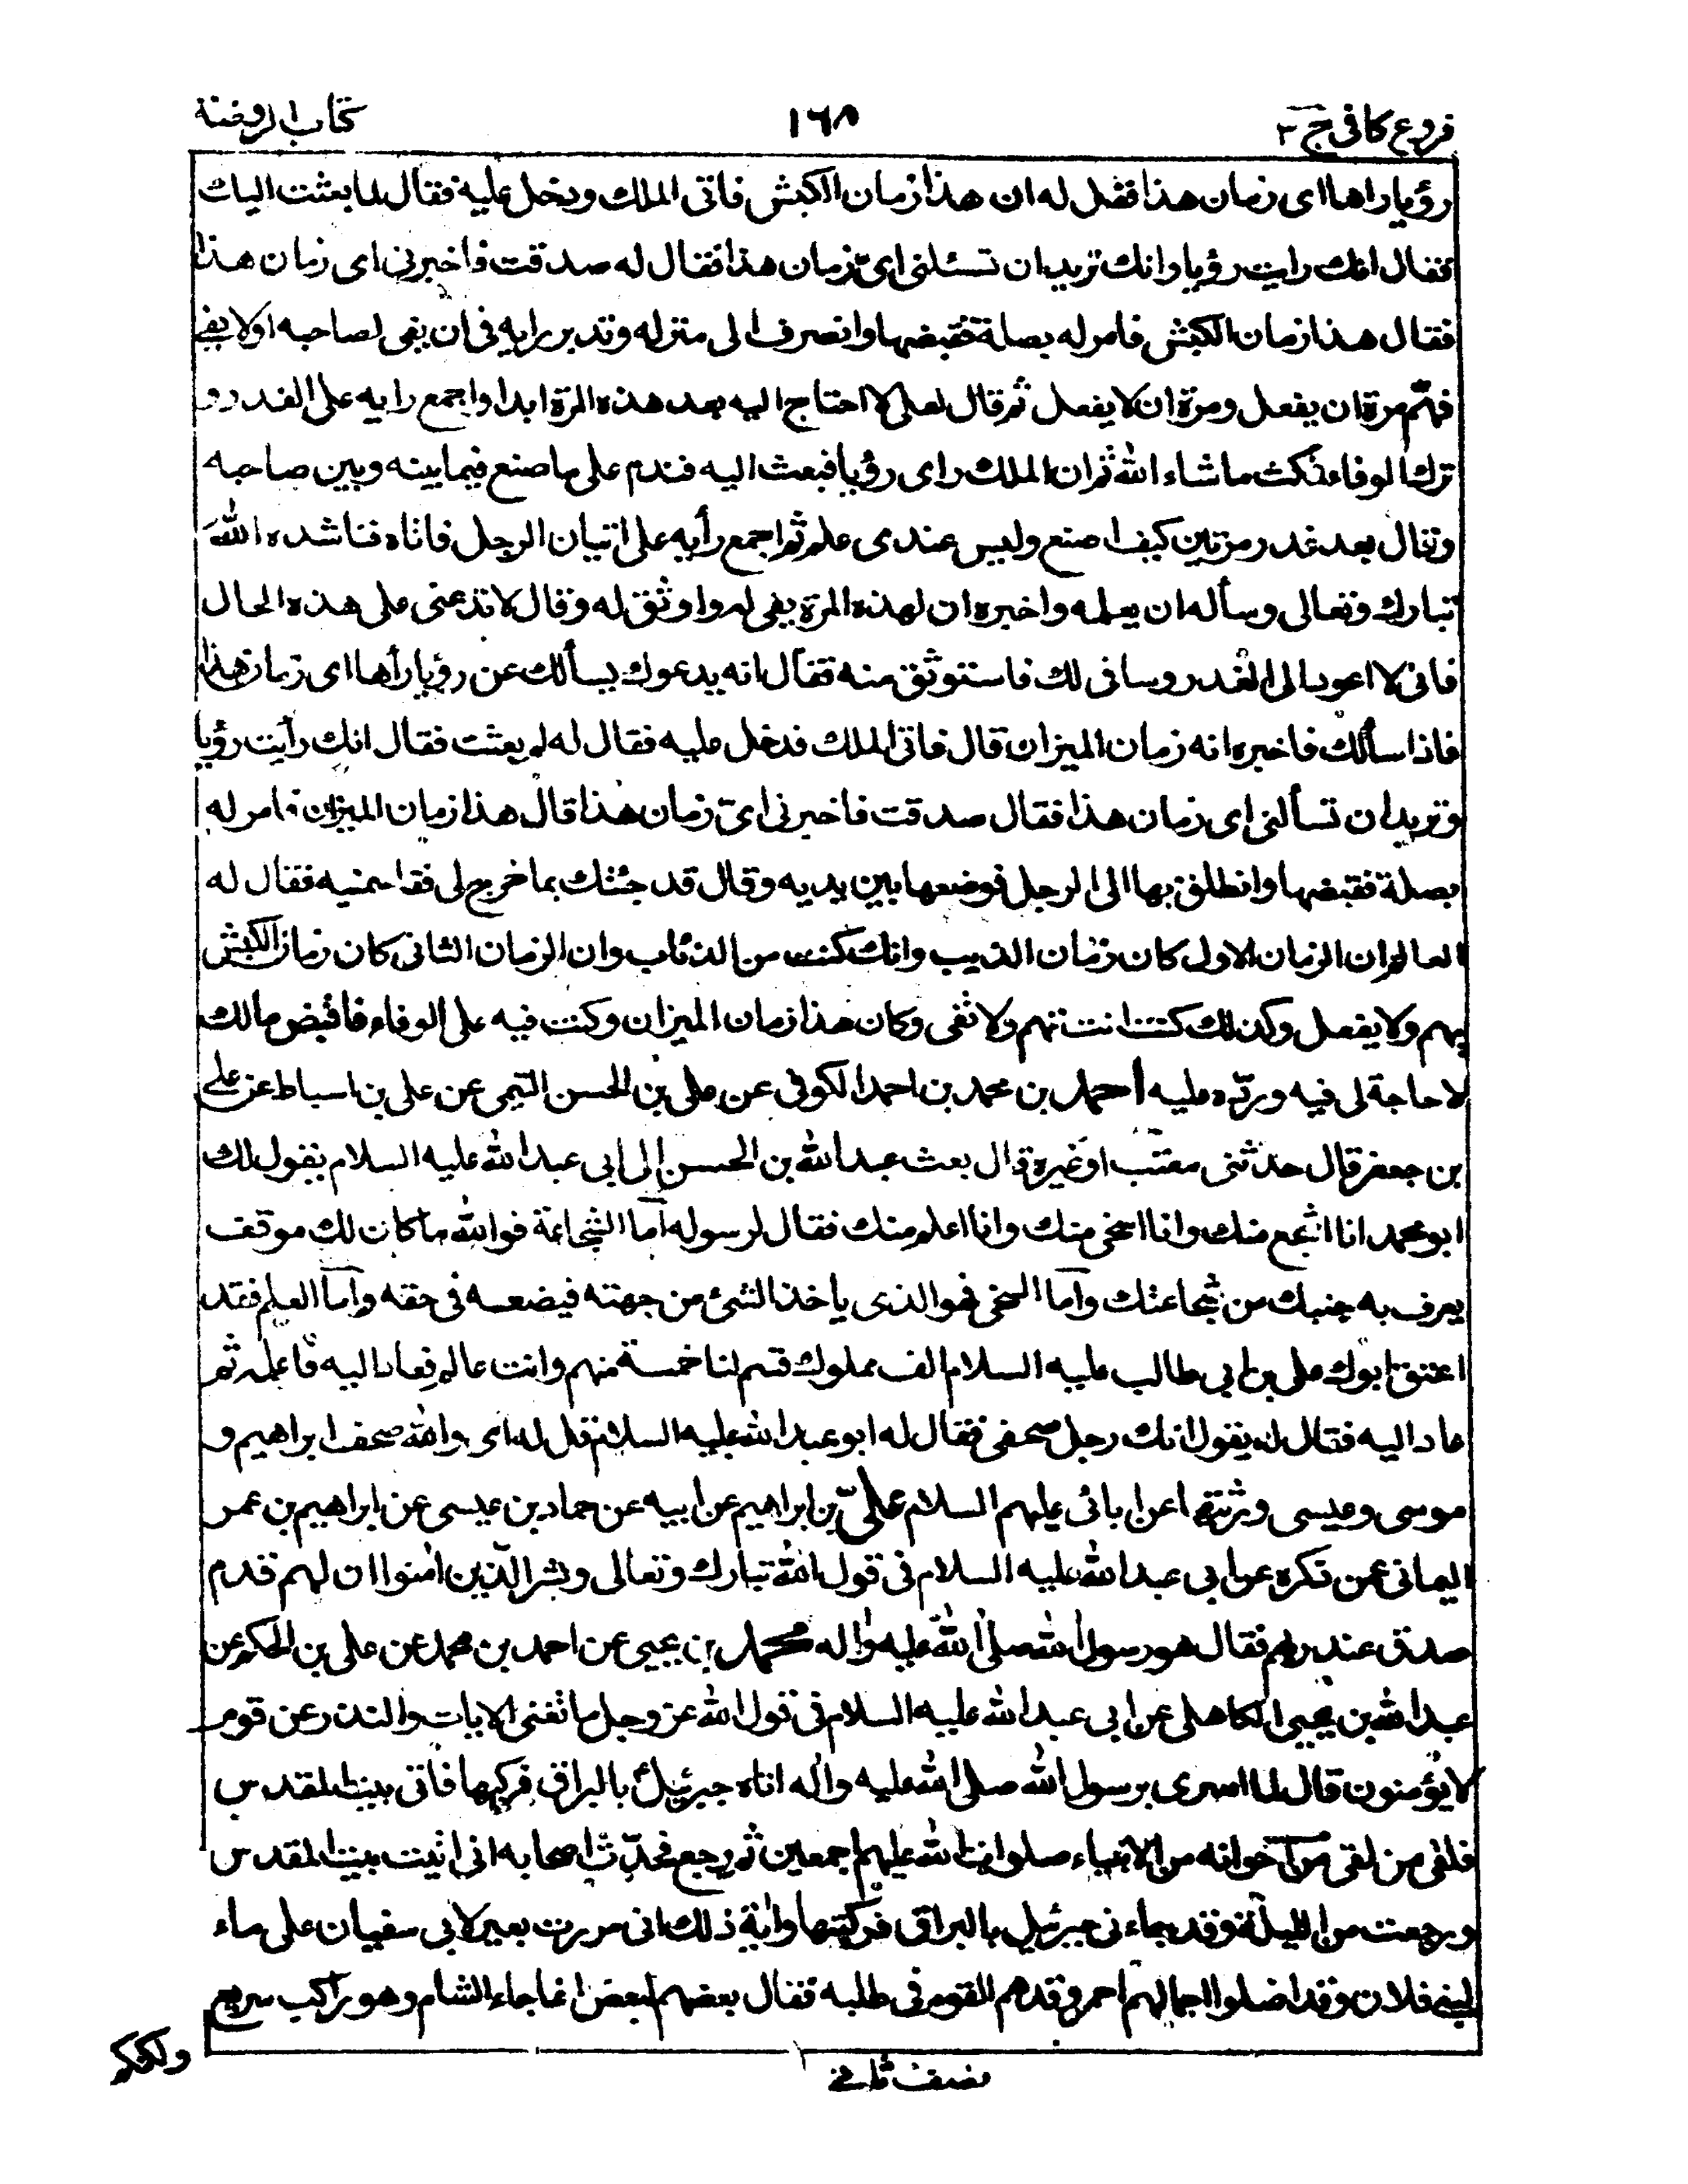 فروع کافی ج ۳
١٦٨
کتاب الروضة
رؤيا راها ای زمان هذا فقل له ان هذا زمان الکبش فاتی الملك ودخل علیه فقال لما بعثت اليك
فقال انك رايت رؤيا وانك تريد ان تسئلنی ایّ زمان هذا فقال له صدقت فاخبرنی ای زمان هذا
فقال هذا زمان الکبش فامر له بصلة فقبضها وانصرف الی منزله وتدبر رايه فی ان يفی لصاحبه اولا يفی
فهمّ مرة ان يفعل ومرة ان لا يفعل ثم قال لعلی لا احتاج اليه بعد هذه المرة ابدا واجمع رايه علی الغدر و
ترك الوفاء فمکث ما شاء الله ثم ان الملك رای رؤيا فبعث اليه فندم علی ما صنع فيما بينه وبين صاحبه
وقال بعد غدر مرتين کيف اصنع وليس عندی علم ثم اجمع رأيه علی اتيان الرجل فاتاه فناشده الله
تبارك وتعالی وسأله ان يعلمه واخبره ان لهذه المرة يفی له واوثق له وقال لا تدعنی علی هذه الحال
فانی لا اعود الی الغدر وسافی لك فاستوثق منه فقال انه يدعوك يسألك عن رؤيا رأها ای زمان هذا
فاذا سألك فاخبره انه زمان الميزان قال فاتی الملك فدخل عليه فقال له لم بعثت فقال انك رأيت رؤيا
وتريد ان تسألنی ای زمان هذا فقال صدقت فاخبرنی ایّ زمان هذا قال هذا زمان الميزان فامر له
بصلة فقبضها وانطلق بها الی الرجل فوضعها بين يديه وقال قد جئتك بما خرج لی فقاسمنيه فقال له
العالم ان الزمان الاول کان زمان الذيب وانك کنت من الذئاب وان الزمان الثانی کان زمان الکبش
يهم ولا يفعل وکذلك کنت انت تهم ولا تفی وکان هذا زمان الميزان وکنت فيه علی الوفاء فاقبض مالك
لا حاجة لی فيه وردّه عليه احمد بن محمد بن احمد الکوفی عن علی بن الحسن التيمی عن علی بن اسباط عن علی
بن جعفر قال حدثنی معتب او غيره قال بعث عبد الله بن الحسن الی ابی عبد الله عليه السلام يقول لك
ابو محمد انا اشجع منك وانا اسخی منك وانا اعلم منك فقال لرسوله امّا الشجاعة فوالله ما کان لك موقف
يعرف به جنبك من شجاعتك وامّا السخی فهو الذی ياخذ الشئ من جهته فيضعه فی حقه وامّا العلم فقد
اعتق ابوك علی بن ابی طالب عليه السلام الف مملوك فسم لنا خمسة منهم وانت عالم فعاد اليه فاعلمه ثم
عاد اليه فقال له يقول انك رجل صحفی فقال له ابو عبد الله عليه السلام قل له ای والله صحف ابراهيم و
موسی وعيسی ورثتها عن ابائی عليهم السلام علیّ بن ابراهيم عن ابيه عن حماد بن عيسی عن ابراهيم بن عمر
اليمانی عمن ذکره عن ابی عبد الله عليه السلام فی قول الله تبارك وتعالی وبشر الّذين امنوا ان لهم قدم
صدق عند ربهم فقال هو رسول الله صلی الله عليه واله محمد بن يحيی عن احمد بن محمد عن علی بن الحکم عن
عبد الله بن يحيی الکاهلی عن ابی عبد الله عليه السلام فی قول الله عز وجل ما تغنی الايات والنذر عن قوم
لا يؤمنون قال لما اسری برسول الله صلی الله عليه واله اتاه جبرئيل بالبراق فرکبها فاتی بيت المقدس
فلقی من لقی من اخوانه من الانبياء صلوات الله عليهم اجمعين ثم رجع فحدّث اصحابه انی اتيت بيت المقدس
ورجعت من الليلة وقد جاءنی جبرئيل بالبراق فرکبتها واية ذلك انی مررت بعير لابی سفيان علی ماء
لبنی فلان وقد اضلوا جمالا لهم احمر وقد هم القوم فی طلبه فقال بعضهم لبعض انما جاء الشام وهو راکب سريع
ولکنکم
نصف ثانی